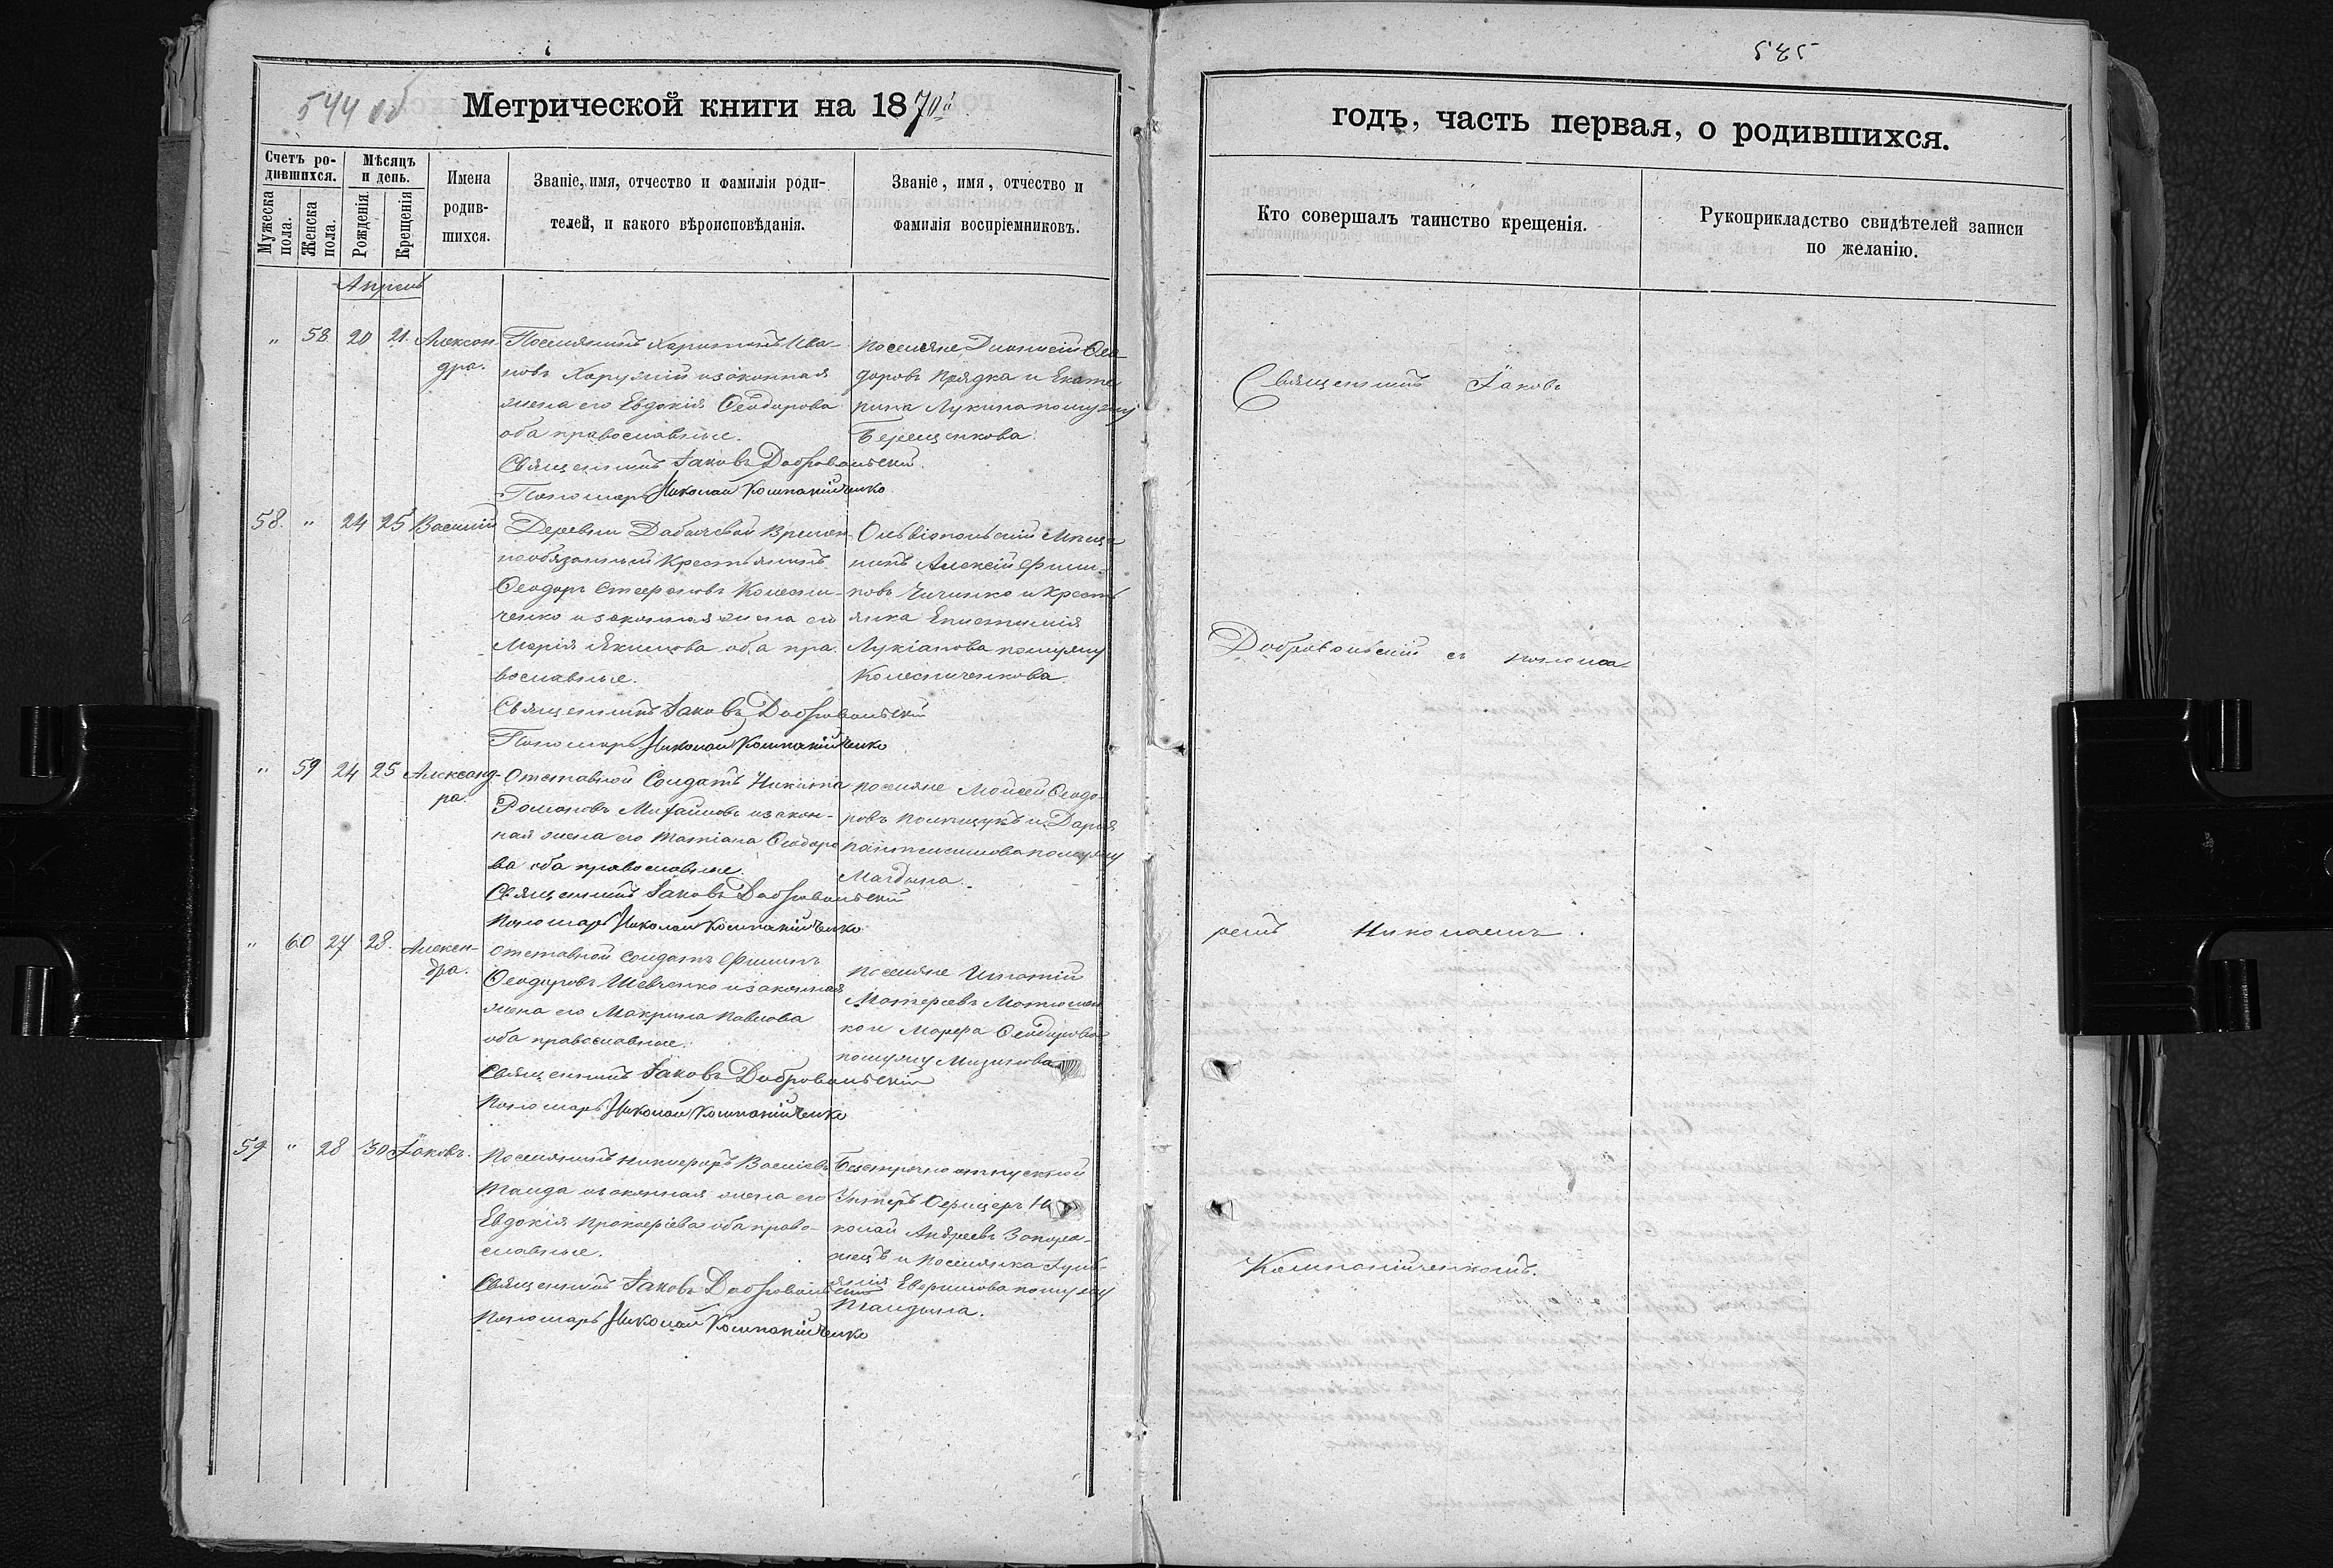 544 об
Метрической книги на 1870й
Счетъ ро-
дившихся.
Мужеска пола.
Женска пола.
Мѣсяцъ
и день.
Рожденія
Крещенія
Имена
родив-
шихся.
Званіе, имя, отчество и фамилія роди-
телей, и какого вѣроисповѣданія.
Званіе, имя, отчество и
фамилія воспріемниковъ.
Апрель
" 58 20 21. Алексан-
дра.
Поселянинъ Харитонъ Ива-
новъ изаконная
жена его Евдокія Ѳеодорова
оба православные.
Священникъ Іаковъ Добровольскій
Пономарь Николай Компанійченко
поселяне Діонисій Ѳео
доровъ Прядка и Екате
рина Лукина помужу
Терещенкова
58. " 24 25 Василій
Деревни Времен-
нообязанный Крестьянинъ
Ѳеодоръ Стефановъ Колесни-
ченко изаконная жена его
Марія Якимова оба пра-
вославные.
Священникъ Іаковъ Добровольскій
Пономарь Николай Компанійченко
Ольвіопольскій Мѣща
нинъ Алексій Филип-
повъ и Крестъ
янка Епистимія
Лукіанова помужу
Колесниченкова.
" 59 24 25 Александ-
ра.
Отставной Солдатъ Никита
Романовъ Михайловъ изакон-
ная жена его Татіана Ѳеодоро
ва оба православные.
Священникъ Іаковъ Добровольскій
Пономарь Николай Компанійченко
поселяне Мойсей Ѳеодо-
ровъ Полищукъ и Дарія
Пантелимонова помужу
" 60 27 28. Алексан-
дра.
отставной солдатъ Филипъ
Ѳеодоровъ Шевченко изаконная
жена его Макрина Павлова
оба православные.
Священникъ Іаковъ Добровольскій
Пономарь Николай Компанійченко
поселяне Игнатій
Матфеевъ Матюшен
ко и Марфа Ѳеодорова
помужу Мизинова
59 " 28 30 Іаковъ.
Поселянинъ Никифоръ Василіевъ
Талда изаконная жена его
Евдокія Прокофіева оба право-
славные.
Священникъ Іаковъ Добровольскій
Пономарь Николай Компанійченко
Безсрочно отпускной
Унтеръ Офицеръ Ни
колай Андреевъ Запоро-
жецъ и поселянка Іулі-
янія Евфимова помужу
Талдина.
545
годъ, часть первая, о родившихся.
Кто совершалъ таинство крещенія.
Рукоприкладство свидѣтелей записи
по желанію.
Священникъ Іаковъ
Добровольскій съ понома
ремъ Николаемъ
Компанійченкомъ.